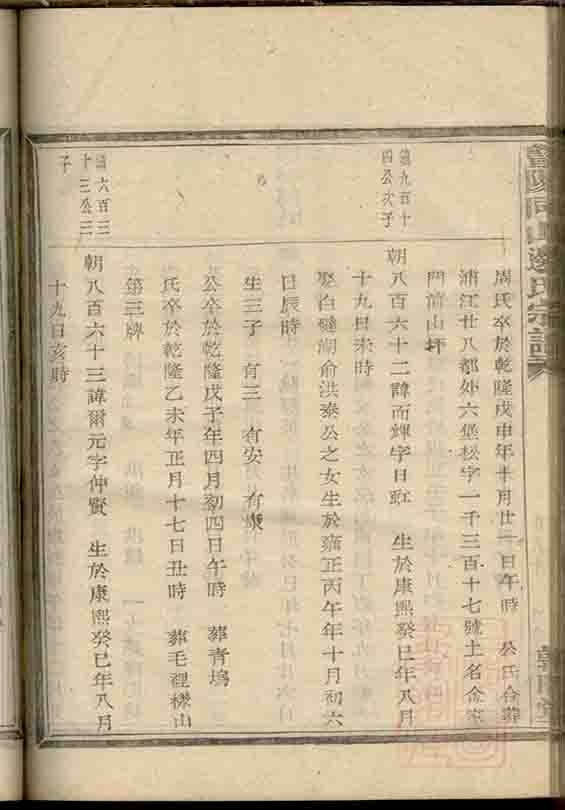 暨陽同山邊氏宗譜
周氏卒於乾隆戊申年十月廿一日午時 公氏合葬
浦江廿八都外六堡松字一千三百十七號土名金
門前山坪
第九百十四公次子
朝八百六十二諱而煇字日 生於康熙癸巳年八月
十九日未時
娶白礁湖俞洪秦公之女生於雍正丙午年十月初六
日辰時
生三子 有三 有安 有康
公卒於乾隆戊子年四月初四日午時 葬青塢
氏卒於乾隆乙未年正月十七日丑時 葬毛裡樣山
第三牌
六百三十三公三子
朝八百六十三諱爾元字仲賢 生於康熙癸巳年八月
十九日亥時